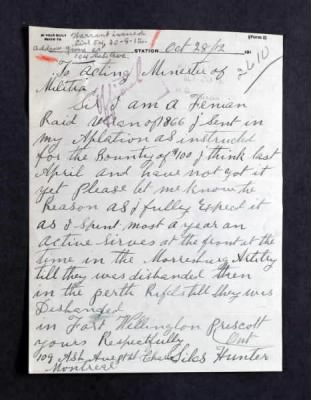 IN YOUR REPLY
REFER TO
(Form B)
Warrant issued
STATION Oct 28/12 191
2610
To Acting Minester of
Militia
Sir I am a Fenian
Raid Vetren of 1866 I sent in
my Aplation as instructed
for the Bounty of $100 I think last
April and have not got it
yet Please let me know the
Reason as I fully Expect it
as I Spent most a year an
Active Serves at the front at the
time in the Morresburg
till they was disbanded then
in the perth Rifels till they was
Disbanded
in Fort Wellington Prescott
yours Respectfully Ont
109 Ash Ave Pt St Charls Silas Hunter
Montreal